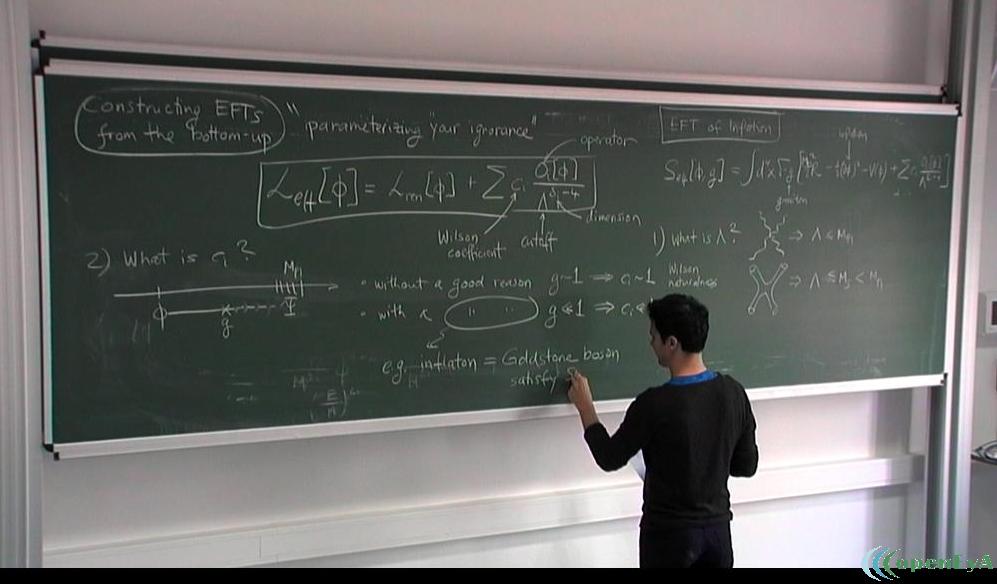 Constructing EFTs
from the bottom-up
"parameterizing "your ignorance"
operator
L_eff[ϕ] = L_ren[ϕ] + Σ c_i O_i[ϕ] / Λ^{δ_i-4}
dimension
Wilson
coefficient
cutoff
2) What is c_i?
M_pl
ϕ
g
Ψ
• without a good reason g~1 ⇒ c_i~1 Wilson
naturalness
• with a " " g≪1 ⇒ c_i≪
e.g. inflaton = Goldstone boson
satisfy
EFT of Inflation
inflaton
S_eff[ϕ,g] = ∫d⁴x √-g [ R - ½(∂ϕ)² - V(ϕ) + Σ c_i O_i[ϕ] / Λ
graviton
1) What is Λ?
⇒ Λ ≲ M_pl
⇒ Λ ≲ M_s < M_pl
openEyA